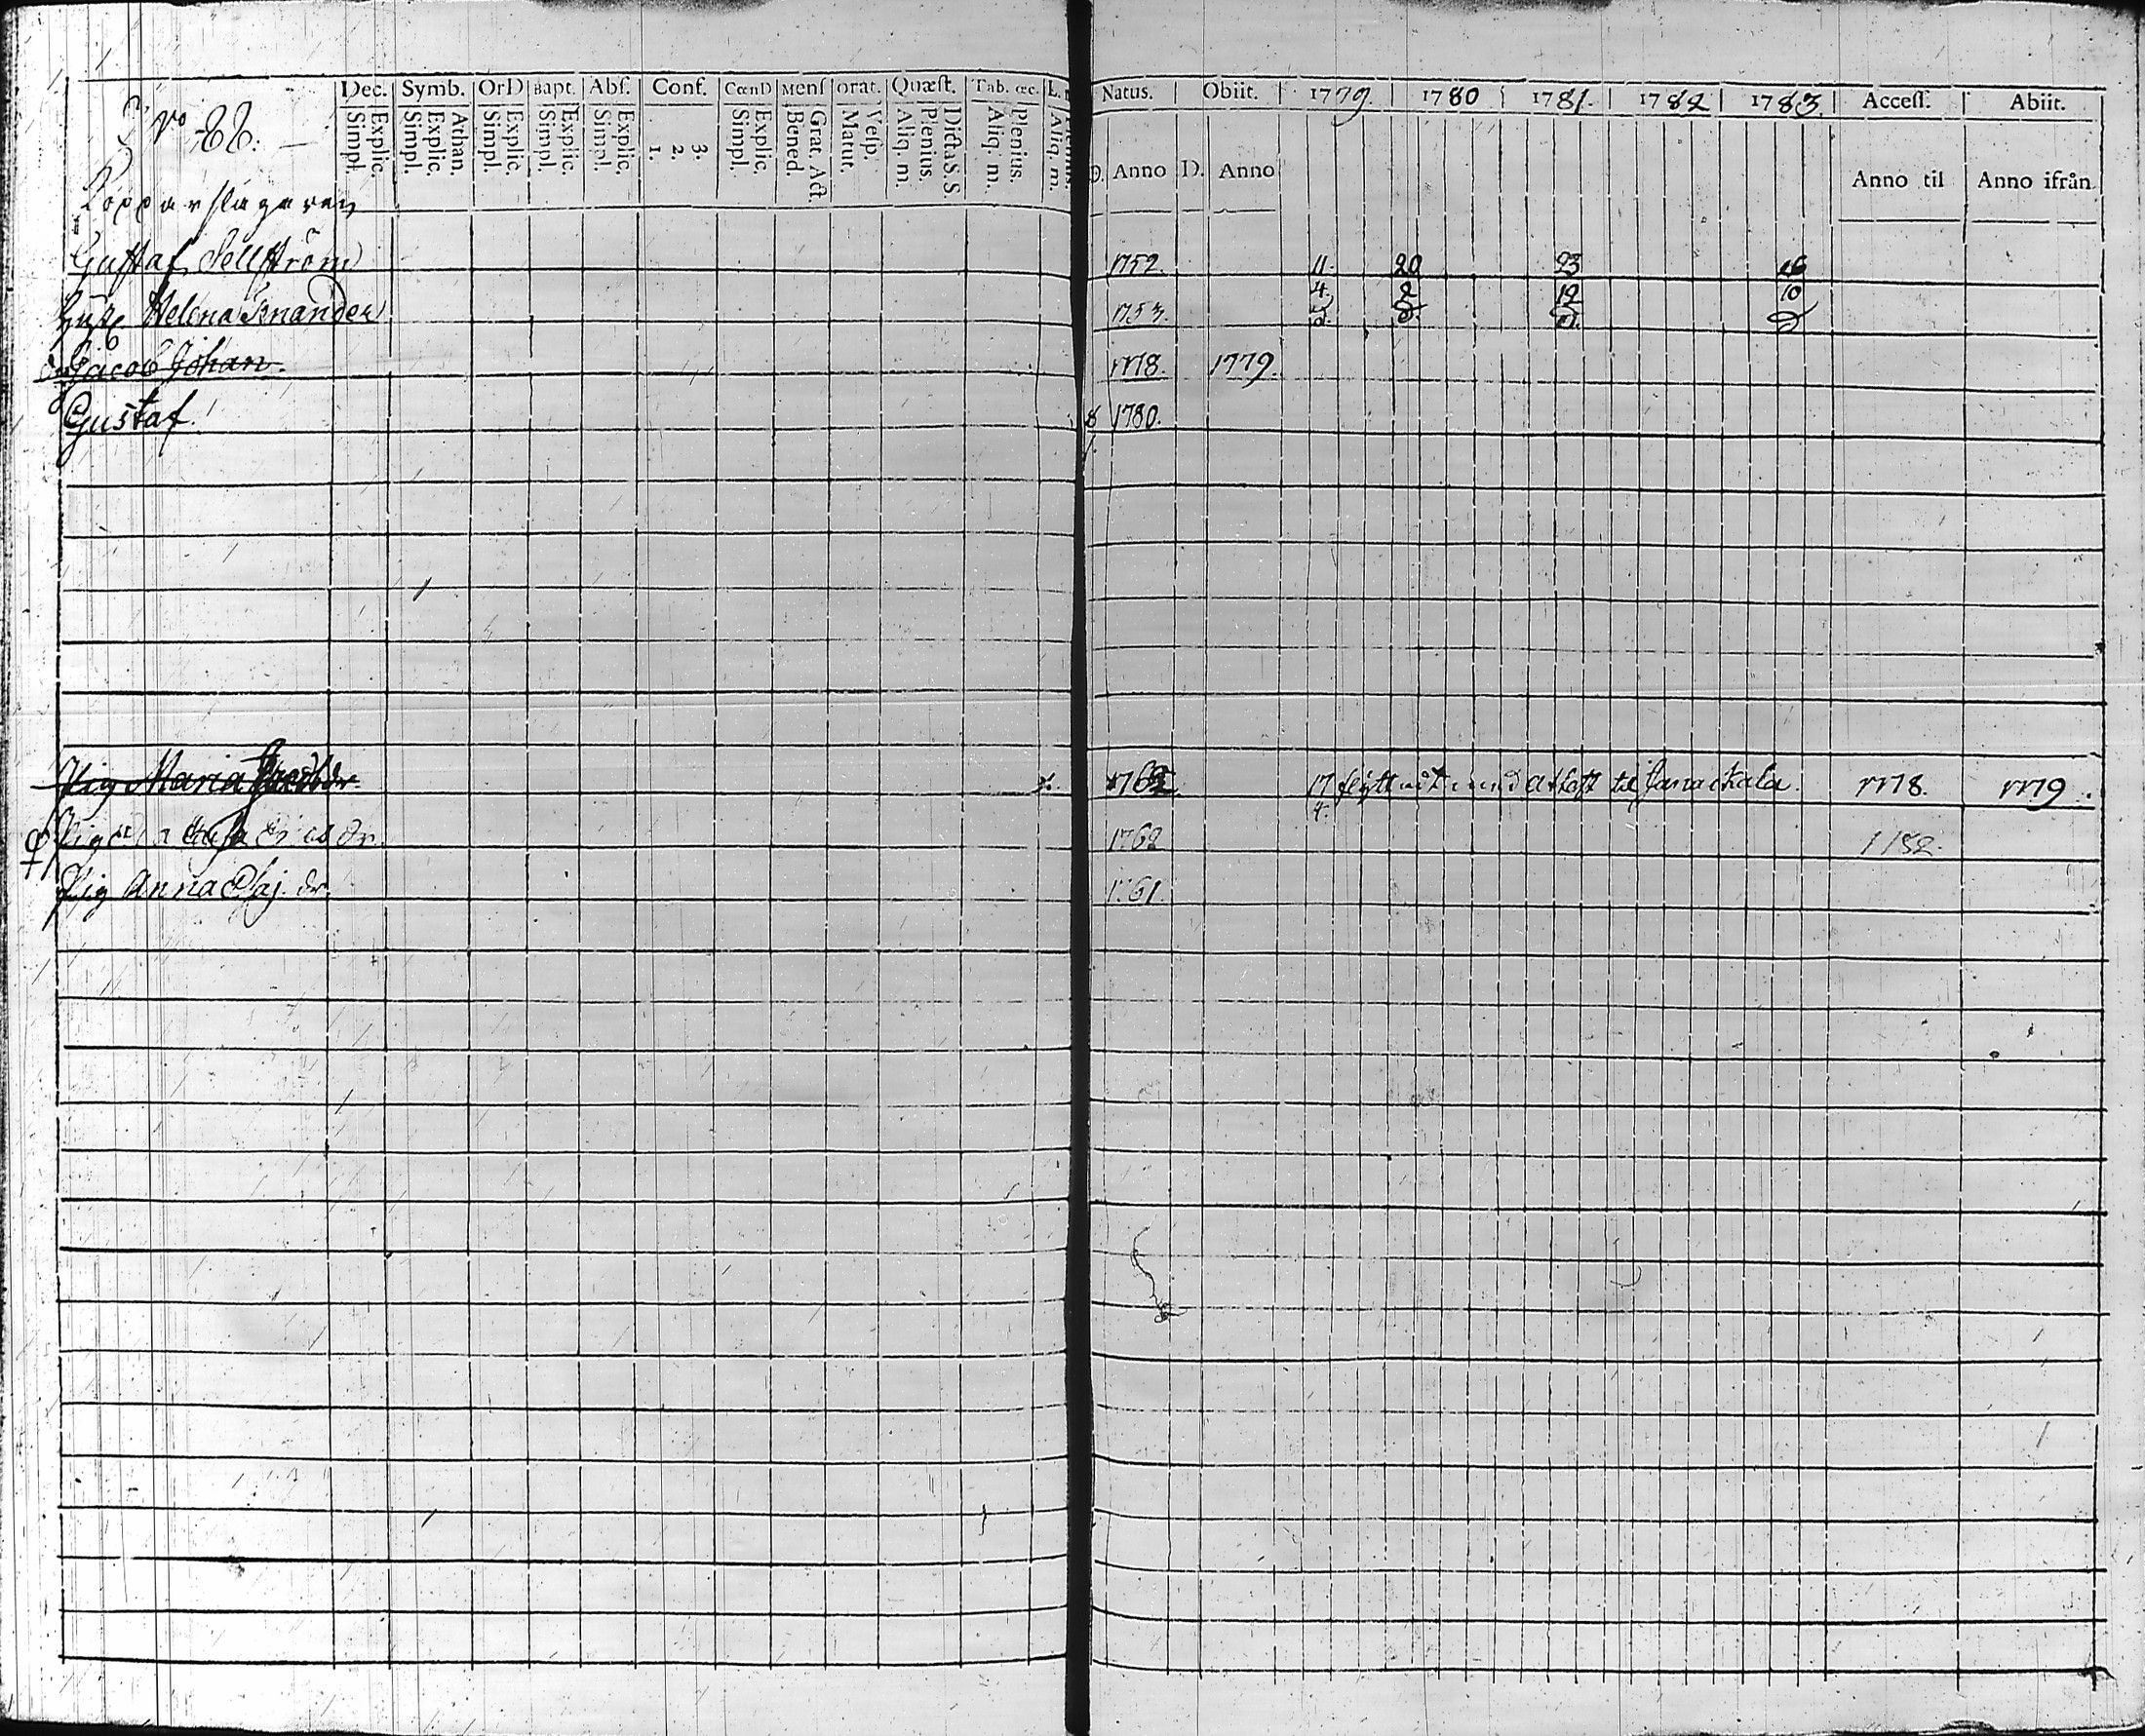 Dec. Symb. OrD Bapt. Abſ. Conf. CœnD Menſ orat. Quæſt. Tab. œc. L.
Explic. Simpl. Athan. Explic. Simpl. Explic. Simpl. Explic. Simpl. Explic. Simpl. 3. 2. 1. Explic. Simpl. Grat. Act. Bened. Veſp. Matut. Dicta S. S. Plenius. Aliq. m. Plenius. Aliq. m. Aliq. m.
Natus. Obiit. 1779. 1780 1781. 1782 1783. Acceſſ. Abiit.
D. Anno D. Anno Anno til Anno ifrån
Kopparslagaren
Gustaf Sellström 1752. 11. 20 23 26
4. 2 12 10
Hust. Helena 1753.
Jacob Johan. 1778. 1779.
Gustaf. 8 1780.
Pig Maria 1762. 17 flÿtt med Attest til Janackala. 1778. 1779.
4.
Pig dr. 1762 1782.
Pig Anna Esaj. dr. 1761.